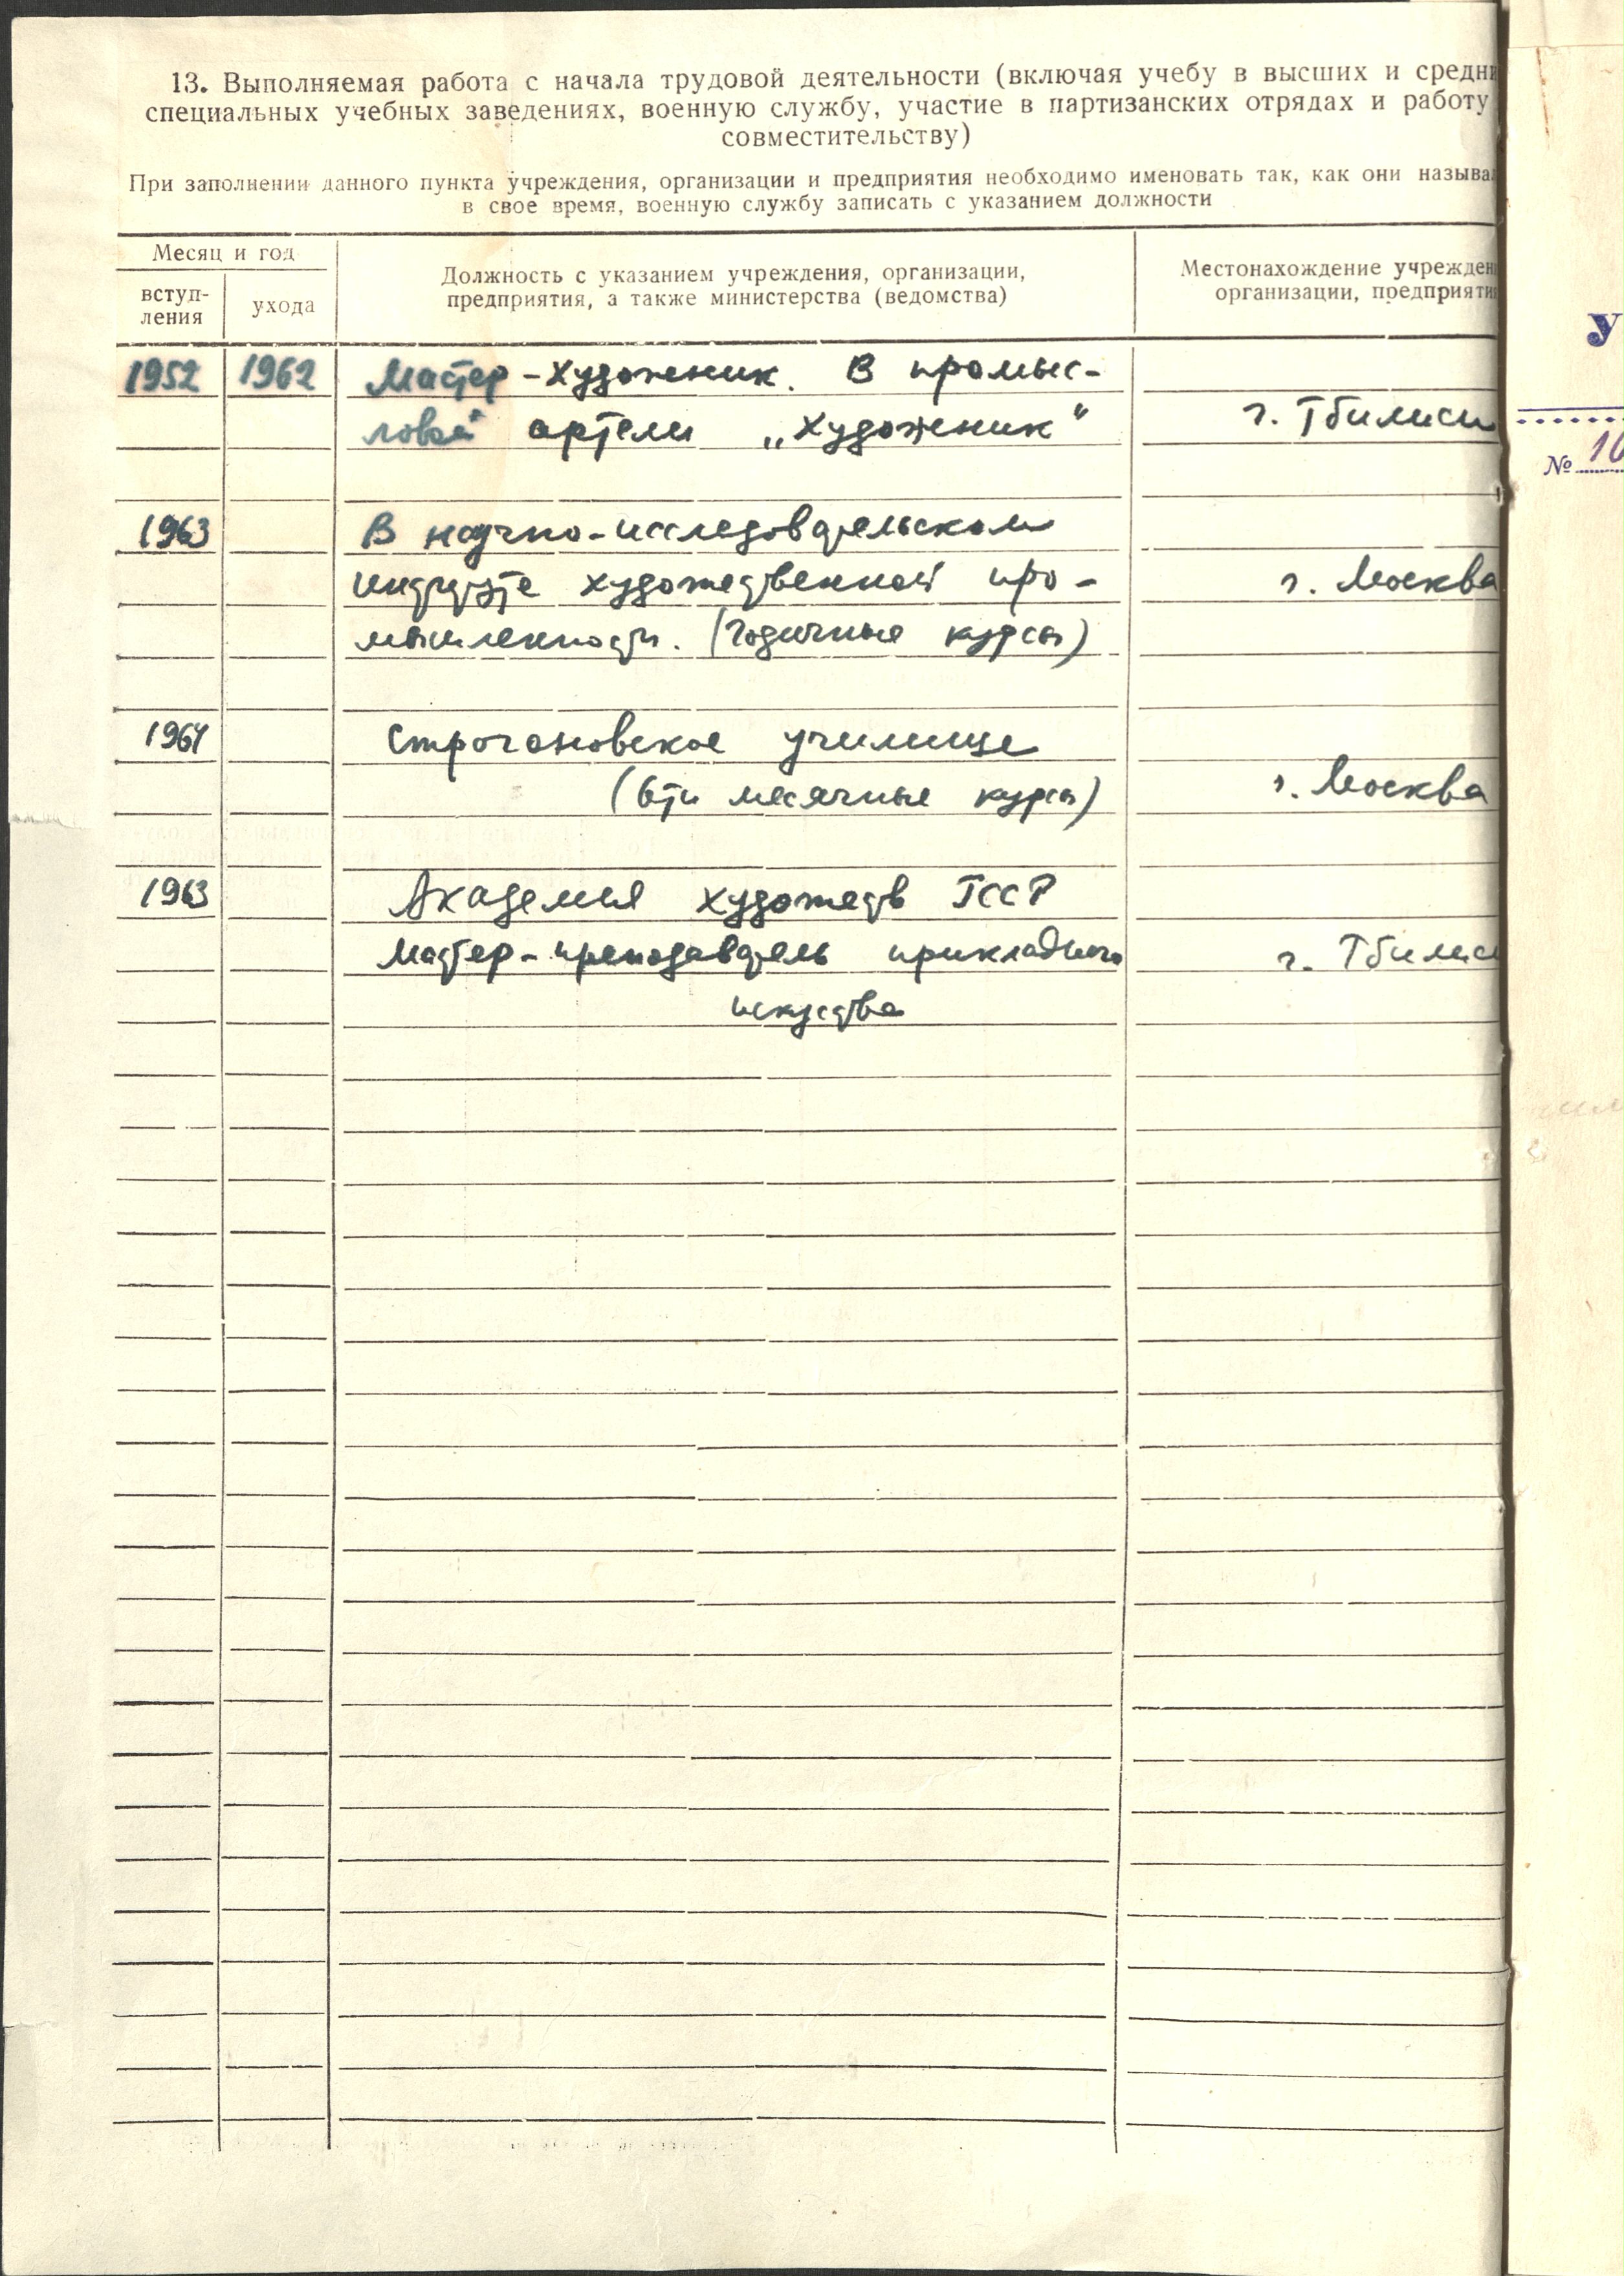 13. Выполняемая работа с начала трудовой деятельности (включая учебу в высших и средни
специальных учебных заведениях, военную службу, участие в партизанских отрядах и работу
совместительству)
При заполнении данного пункта учреждения, организации и предприятия необходимо именовать так, как они называл
в свое время, военную службу записать с указанием должности
Месяц и год
вступ-
ления
ухода
Должность с указанием учреждения, организации,
предприятия, а также министерства (ведомства)
Местонахождение учрежден
организации, предприяти
1952 1962 Мастер-художник. В промыс-
ловой артели „Художник“ г. Тбилиси
1963 В научно-исследовательском
институте художественной про- г. Москва
мышленности. (Годичные курсы)
1964 Строгановское училище
(6ти месячные курсы) г. Москва
1963 Академия художеств ГССР
Мастер-преподаватель прикладного г. Тбилиси
искуства
У
№ 10